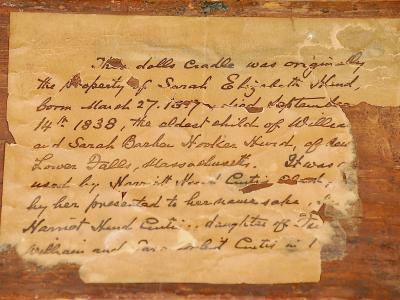 This dolls cradle was originally
the property of Sarah Elizabeth Hurd,
born March 27. died September
14th 1838, the eldest child of
and Sarah Barker Hooker Hurd, of
Lower Falls, Massachusetts. It was
used by Harriett Hurd Curtis
by her presented to her namesake,
Harriet Hurd daughter of
William and Curtis in